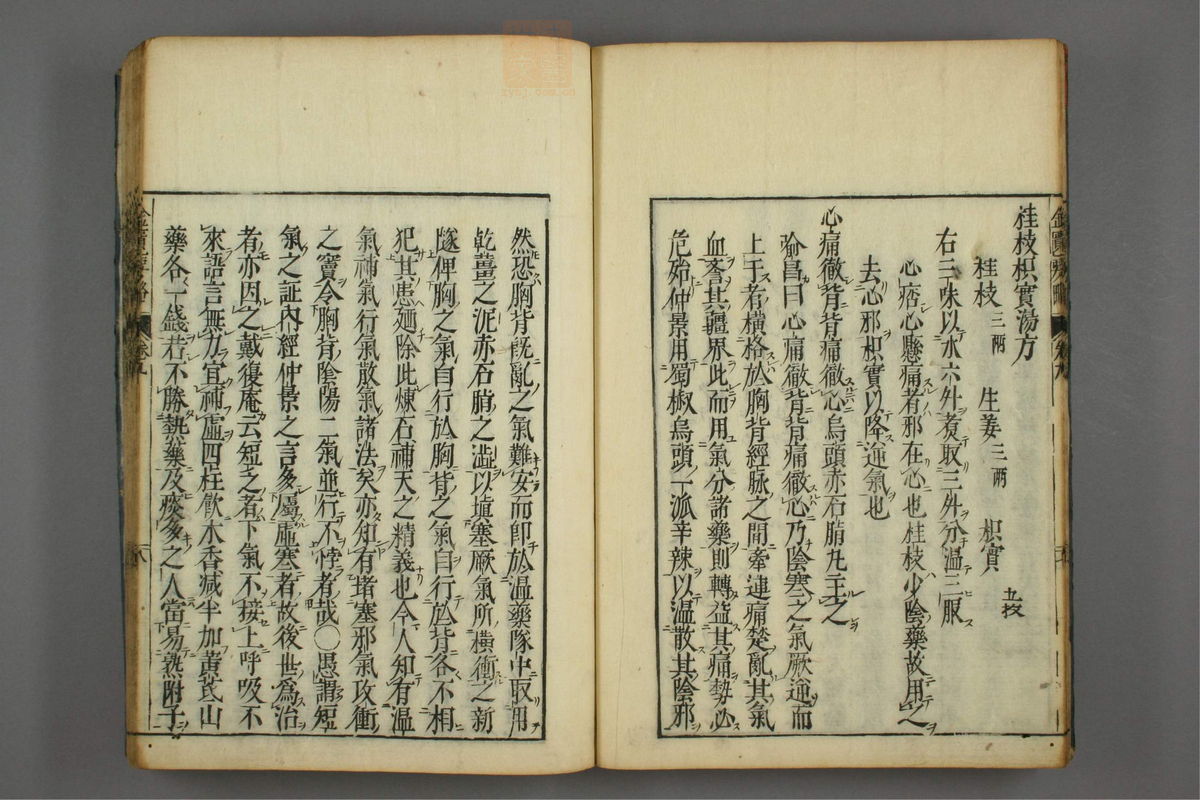 桂枝枳實湯方
桂枝三兩 生姜三兩 枳實五枚
右三味以水六升煮取三升分溫三服
心痞心懸痛者邪在心也桂枝少陰藥故用之
去心邪枳實以降逆氣也
心痛徹背背痛徹心烏頭赤石脂丸主之
喻昌曰心痛徹背背痛徹心乃陰寒之氣厥逆而
上干者橫格於胸背經脉之間牽連痛楚亂其氣
血紊其疆界此而用氣分諸藥則轉益其痛勢必
危殆仲景用蜀椒烏頭一派辛辣以溫散其陰邪
然恐胸背既亂之氣難安而即於溫藥隊中取用
乾薑之泥赤石脂之澁以填塞厥氣所橫衝之新
隧俾胸之氣自行於胸背之氣自行於背各不相
犯其患廼除此煉石補天之精義也今人知有溫
氣補氣行氣散氣諸法矣亦知有堵塞邪氣攻衝
之竇令胸背陰陽二氣並行不悖者哉〇愚謂短
氣之証內經仲景之言多屬虛寒者故後世為治
者亦因之戴復庵云短之者下氣不接上呼吸不
來語言無力宜補虛四柱飲木香減半加黃芪山
藥各一錢若不勝熱藥及痰多之人當易熟附子